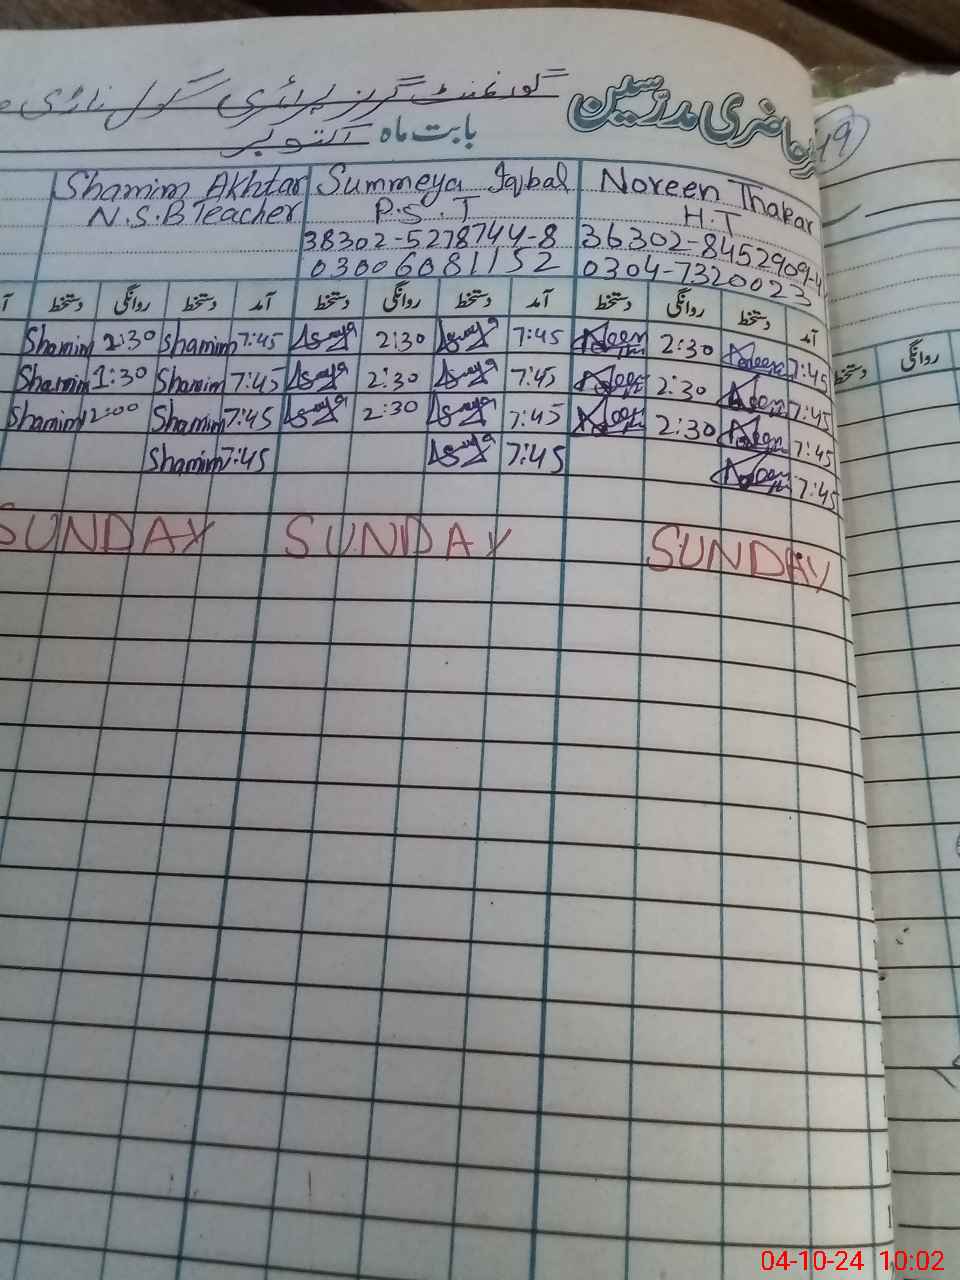 حاضری مدرسین
19
گورنمنٹ گرلز پرائمری سکول
بابت ماہ اکتوبر
Shamim Akhtar Summeya Iqbal Noreen Thakar
N.S.B Teacher P.S.T H.T
38302-5278744-8 36302-8452909-4
03006081152 0304-7320023
آمد دستخط روانگی دستخط آمد دستخط روانگی دستخط آمد دستخط روانگی دستخط
روانگی دستخط
Shamim 2:30 Shamim 7:45 Asmya 2:30 Asmya 7:45 Noreen 2:30 Noreen 7:45
Shamim 1:30 Shamim 7:45 Asmya 2:30 Asmya 7:45 Noreen 2:30 Noreen 7:45
Shamim 12:00 Shamim 7:45 Asmya 2:30 Asmya 7:45 Noreen 2:30 Noreen 7:45
Shamim 7:45 Asmya 7:45 Noreen 7:45
SUNDAY SUNDAY SUNDAY
04-10-24 10:02